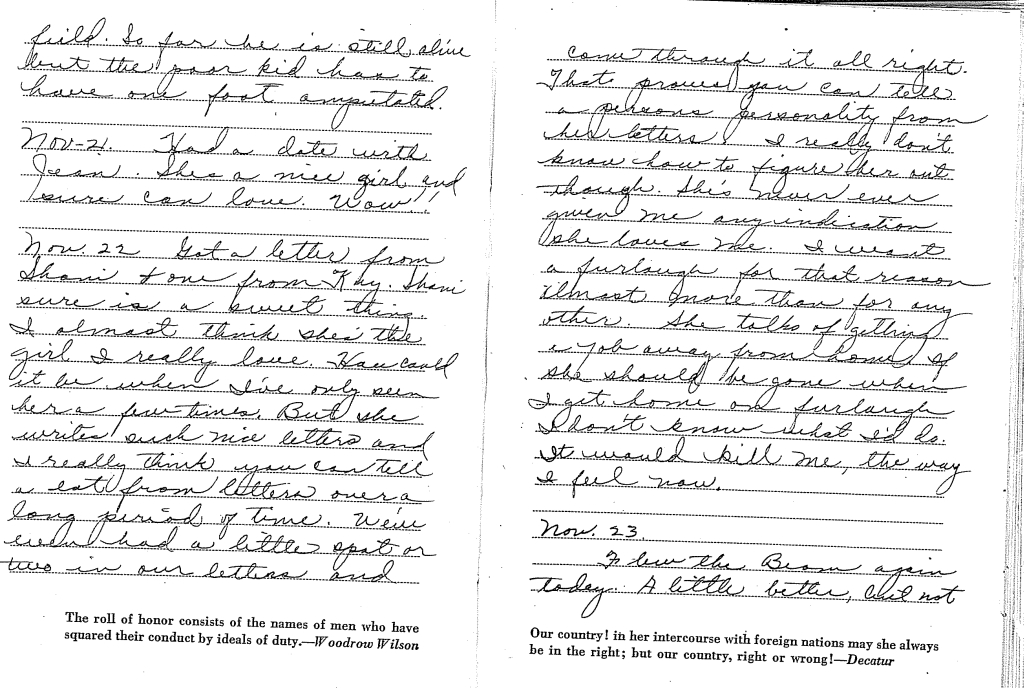 field. So far he is still alive
but the poor kid has to
have one foot amputated.
Nov-21. Had a date with
Jean. She's a nice girl and
sure can love. Wow!!
Nov. 22 Got a letter from
Shani + one from Kay. Shani
sure is a sweet thing.
I almost think she's the
girl I really love. How could
it be when I've only seen
her a few times. But she
writes such nice letters and
I really think you can tell
a lot from letters over a
long period of time. We've
even had a little spat or
two in our letters and
The roll of honor consists of the names of men who have
squared their conduct by ideals of duty.—Woodrow Wilson
come through it all right.
That proves you can tell
a persons personality from
her letters! I really don't
know how to figure her out
though. She's never ever
given me any indication
she loves me. I want
a furlough for that reason
almost more than for any
other. She talks of getting
a job away from home. If
she should be gone when
I get home on furlough
I don't know what I'd do.
It would kill me, the way
I feel now.
Nov. 23.
Flew the Beam again
today. A little better, but not
Our country! in her intercourse with foreign nations may she always
be in the right; but our country, right or wrong!—Decatur